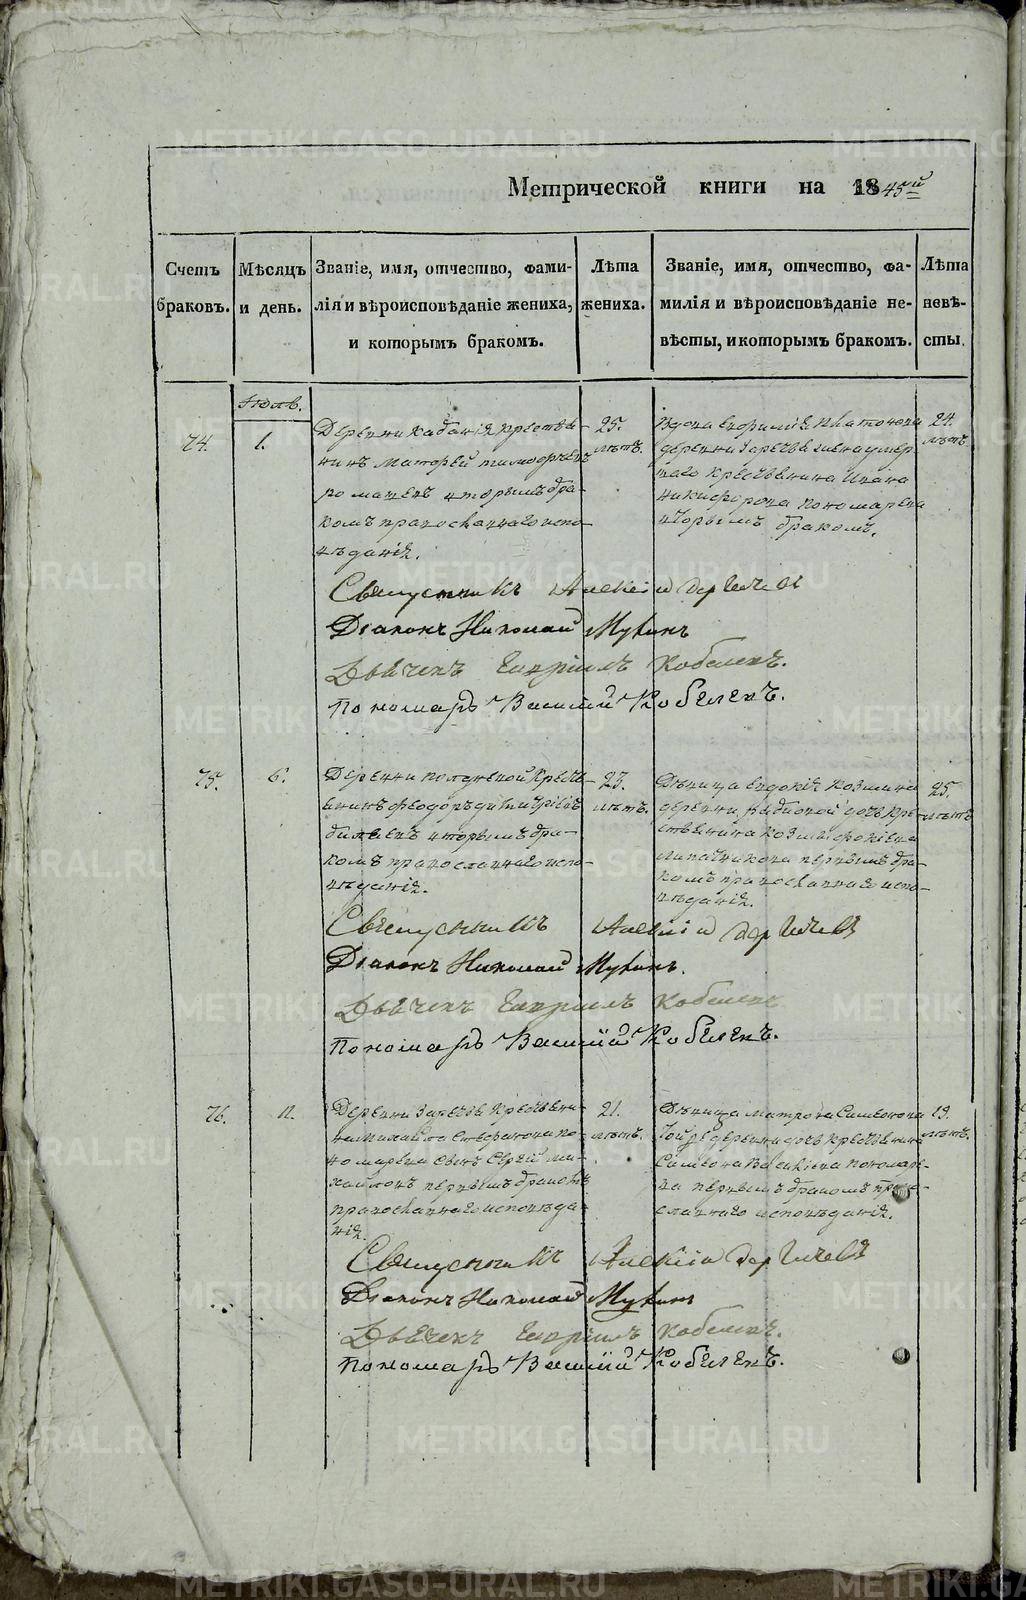 METRIKI.GASO-URAL.RU
Метрической книги на 1845й
Счетъ браковъ.
Мѣсяцъ и день.
Званіе, имя, отчество, фами-
лія и вѣроисповѣданіе жениха,
и которымъ бракомъ.
Лѣта жениха.
Званіе, имя, отчество, фа-
милія и вѣроисповѣданіе не-
вѣсты, и которымъ бракомъ.
Лѣта невѣ-
сты.
74.
1.
Деревни
крестья-
нинъ Матфей Тимофѣевъ
вторымъ бра-
комъ православнаго испо-
вѣданія.
25.
лѣтъ.
Вдова Евфимія Платонова
деревни Зарѣчья жена умер-
шаго крестьянина Ивана
Никифорова Пономарева
вторымъ бракомъ.
24.
лѣтъ.
Священникъ Алексій Дергачевъ
Діаконъ Николай Мухинъ
Дьячекъ Гавріилъ Кобелевъ.
Пономарь Василій Кобелевъ.
75.
6.
Деревни
Кресть-
янинъ Феодоръ Димитріевъ
вторымъ бра-
комъ православнаго испо-
вѣданія.
23.
лѣтъ.
Дѣвица Евдокія Козмина
деревни
дочь кре-
стьянина Козмы
первымъ бра-
комъ православнаго испо-
вѣданія.
25.
лѣтъ
Священникъ Алексій Дергачевъ
Діаконъ Николай Мухинъ.
Дьячекъ Гавріилъ Кобелевъ
Пономарь Василій Кобелевъ.
76.
11.
Деревни Зарѣчья Крестьяни-
на Михайла Стефанова По-
номарева сынъ Сергій Ми-
хайловъ первымъ бракомъ
православнаго исповѣда-
нія.
21.
лѣтъ.
Дѣвица Матрона Симеонова
той же деревни дочь крестьянина
Симеона Васильева Пономаре-
ва первымъ бракомъ право-
славнаго исповѣданія.
19.
лѣтъ.
Священникъ Алексій Дергачевъ
Діаконъ Николай Мухинъ
Дьячекъ Гавріилъ Кобелевъ.
Пономарь Василій Кобелевъ.